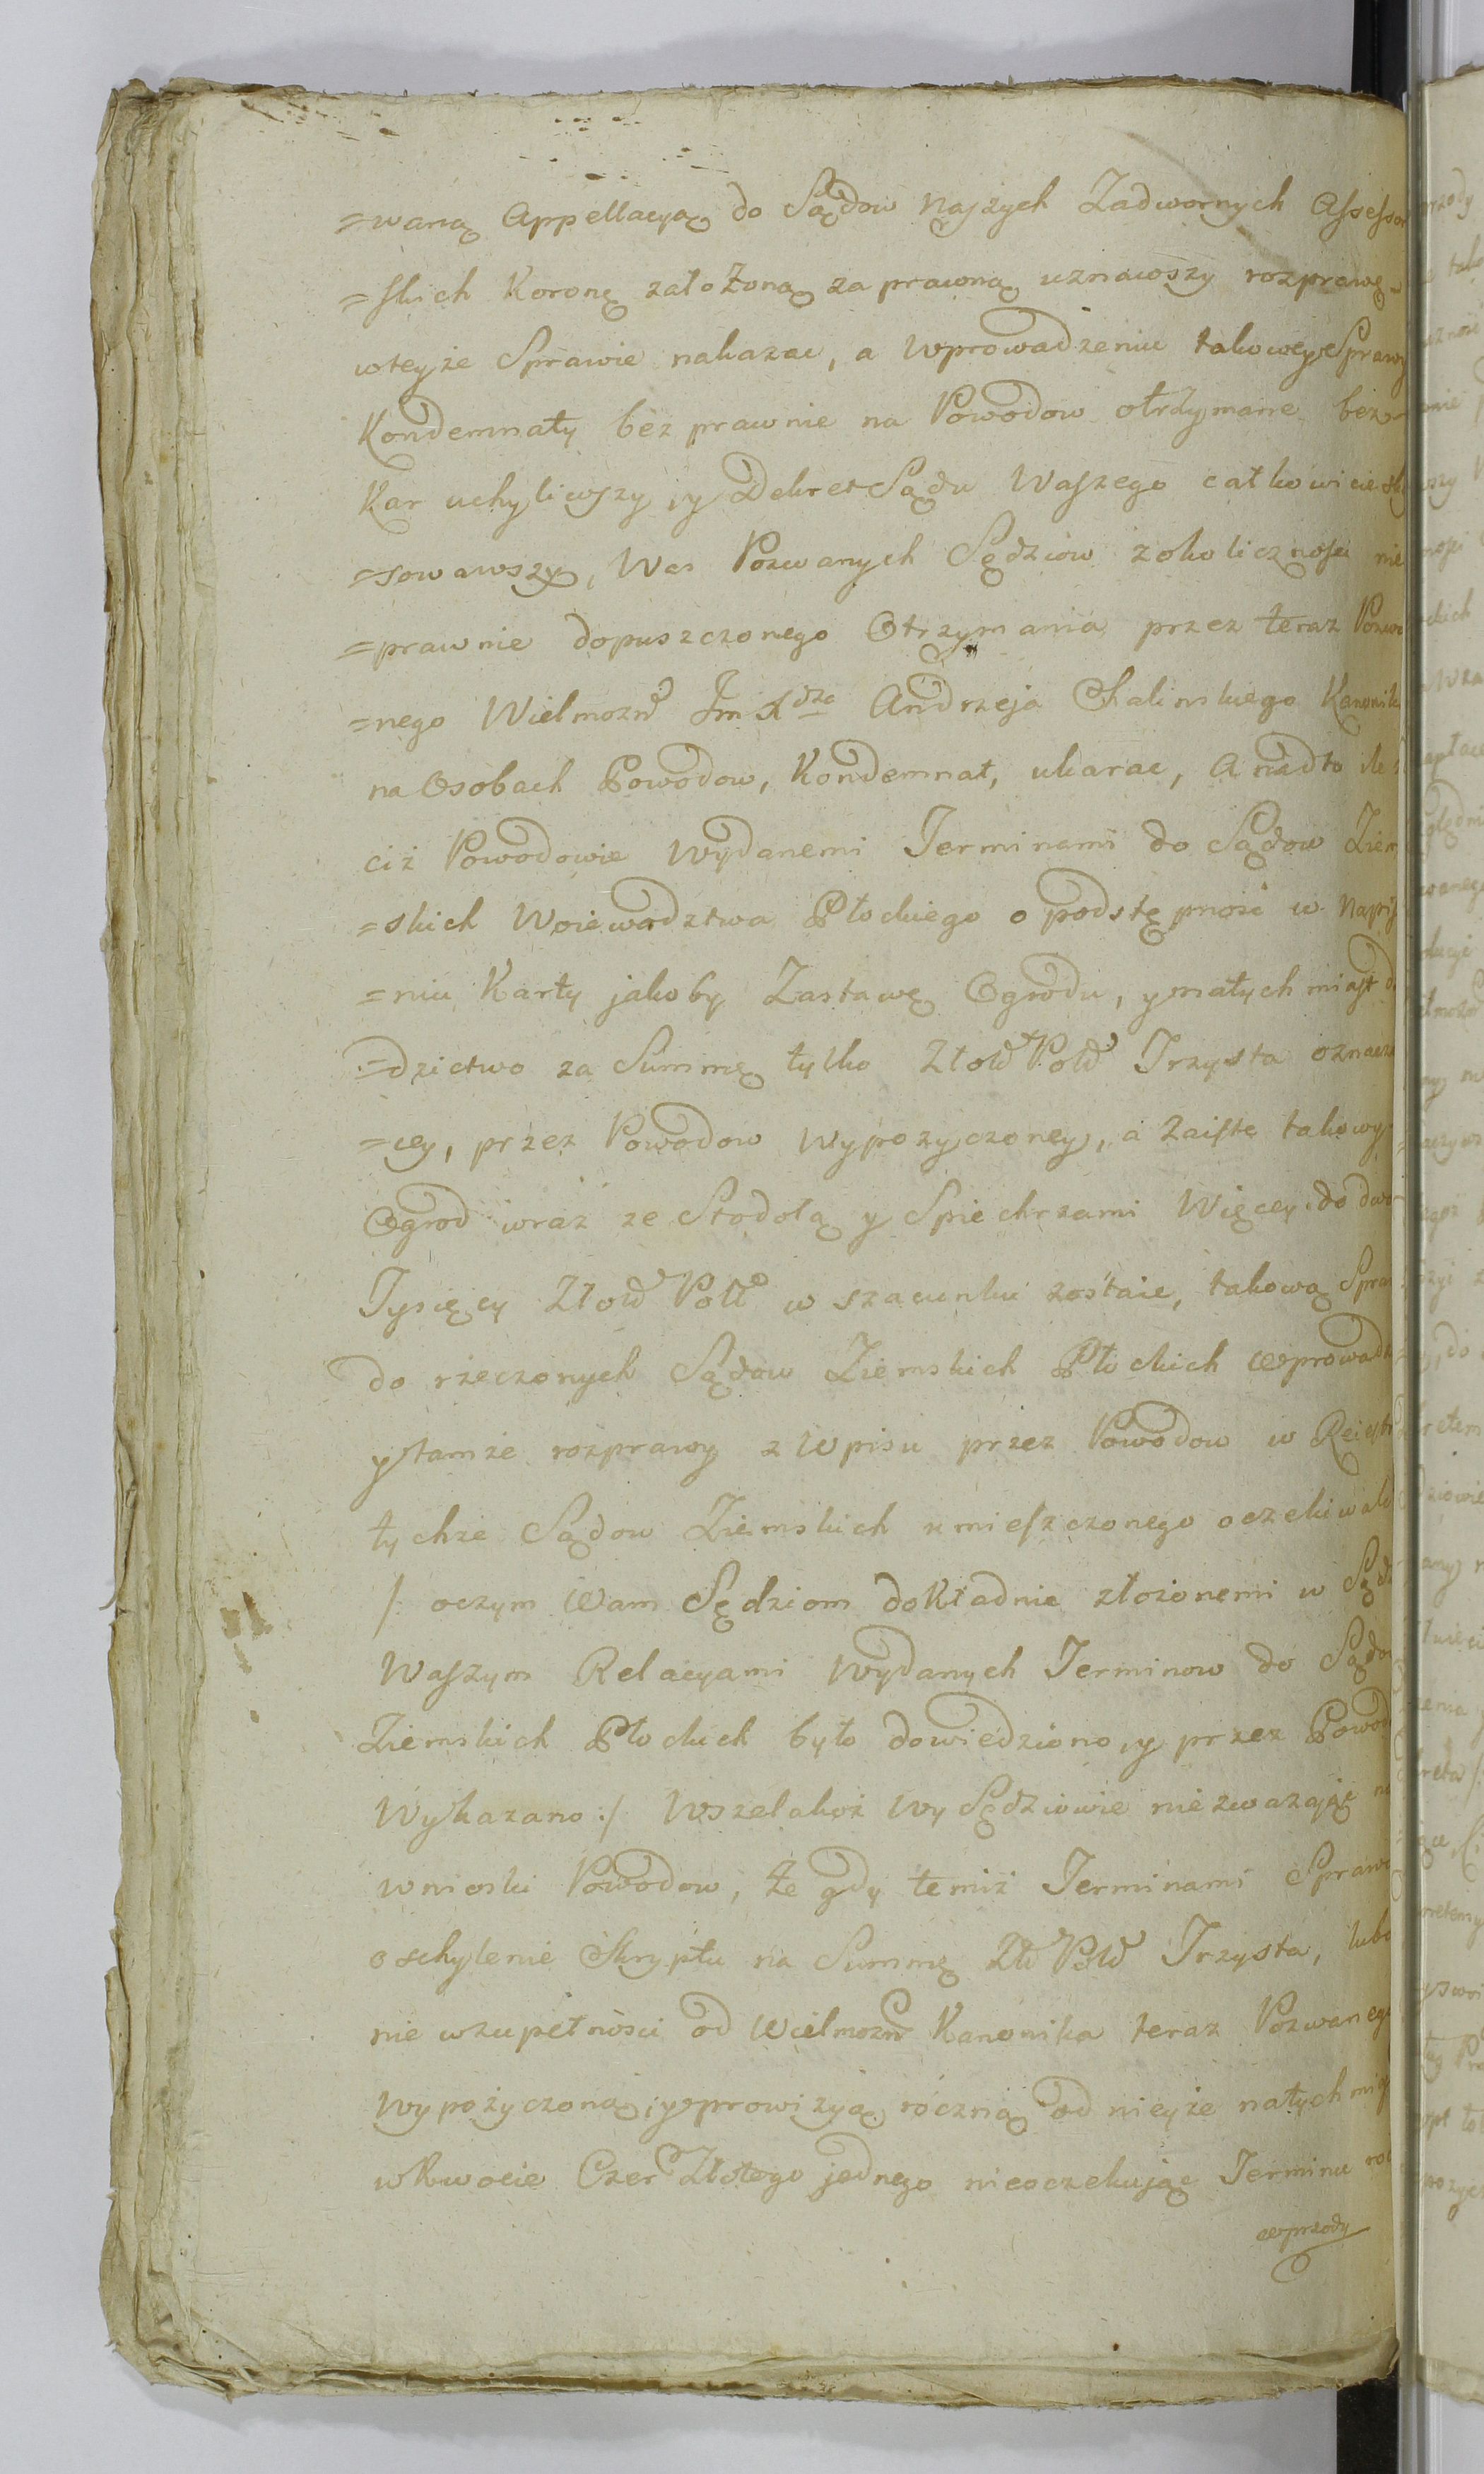 =waną Appellacyą do Sądow Naszych Zadwornych Assessor
=skich Koronę założoną za prawną uznawszy rozprawę
wteyże Sprawie nakazac, a Wprowadzeniu takowey Sprawy
Kondemnaty bez prawnie na Powodow otrzymane bez
Kar uchyliwszy, y Dekret Sądu Waszego całkowicie ska
=sowawszy, Was Pozwanych Sędziow z okoliczności nie
=prawnie dopuszczonego Otrzymania przez teraz Pozwa
=nego Wielmożn Jm Xdza Andrzeja Chalinskiego Kanonika
na Osobach Powodow, Kondemnat, ukarac, A nadto ile
ciż Powodowie wydanemi Terminami do Sądow Ziem
=skich Woiewodztwa Płockiego o podstępność w Napisa
=niu Karty jakoby Zastawę Ogrodu, y natychmiast
=dzictwo za Summę tylko Złotł Polł Trzysta oznacza
=cey, przez Powodow wypożyczoney, a zaiste takowy
Ogrod wraz ze Stodołą y Spiechrzami Więcey do dwoch
Tysięcy Złotł Polł w szacunku zostaie, takową Spraw
do rzeczonych Sądow Ziemskich Płockich wprowadz
y tamże rozprawy z Wpisu przez Powodow w Reiestr
tychże Sądow Ziemskich umieszczonego oczekiwali
/: oczym Wam Sędziom dokładnie złożonemi w Sądzie
Waszym Relacyami wydanych Terminow do Sądow
Ziemskich Płockich było dowiedziono, y przez Powod
Wykazano :/ Wszelakoż Wy Sędziowie nie zwazając na
wnioski Powodow, że gdy temiż Terminami Spraw
o schylenie Skryptu na Summę Złł Polł Trzysta, lubo
nie wzupełności od Wielmożn Kanonika teraz Pozwanego
wypożyczoną, y prowizyą roczną od nieyże natychmias
w Kwocie Czer Złotego jednego nieoczekując Terminu ro
wprzody